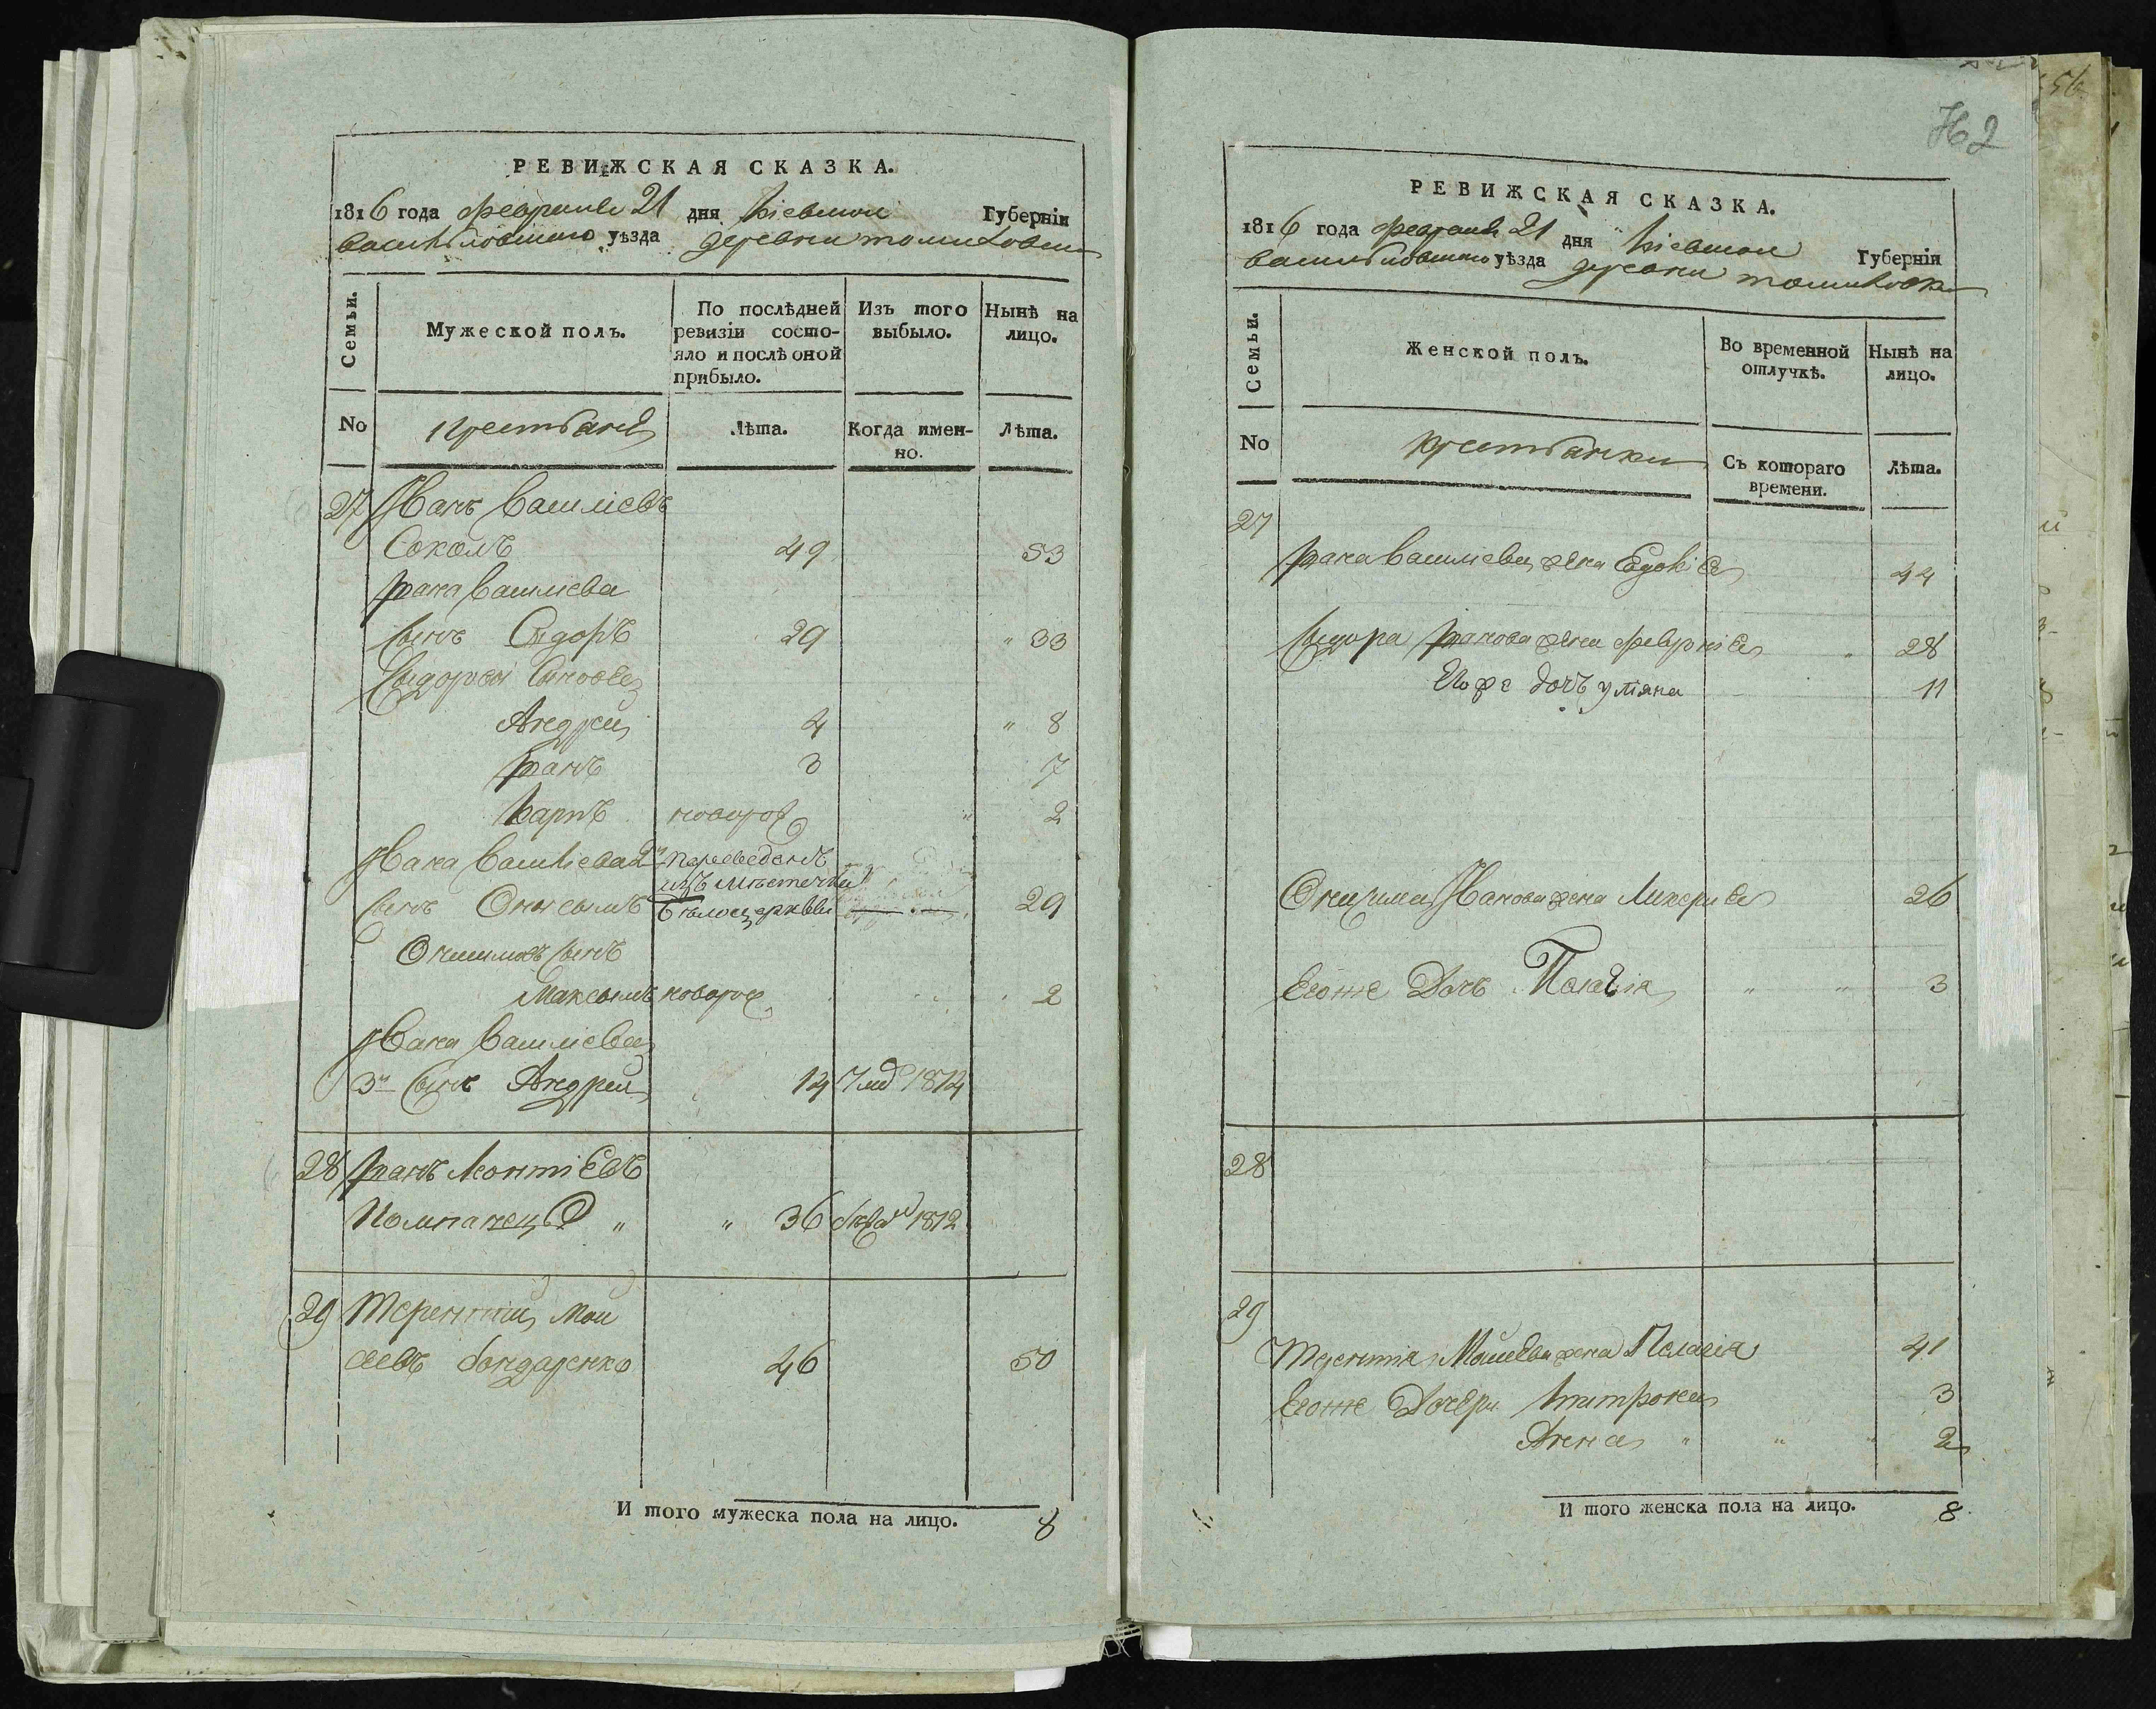 РЕВИЖСКАЯ СКАЗКА.
1816 года февраля 21 дня Кіевской Губерніи
васильковскаго уѣзда деревни томиловки
Семьи.
Мужеской полъ.
По послѣдней ревизіи состояло и послѣ оной прибыло.
Изъ того выбыло.
Нынѣ на лицо.
No
крестьяне
Лѣта.
Когда именно.
Лѣта.
27 Иванъ Василіевъ
Соколъ 49 53
Ивана Василіева
сынъ Сидоръ 29 " 33
Сидоровы Сыновья
Андрей 4 " 8
Иванъ 3 7
Карпъ новорож " 2
Ивана Василіева 2й переведенъ
изъ мѣстечка
сынъ Онисимъ бѣлоцеркви 29
Онисимовъ сынъ
Максымъ новорож 2
Ивана Василіева
3й сынъ Андрей 14 умр 1814
28 Иванъ Леонтіевъ
Компанецъ " " 36 1812
29 Терентий Мои
сеевъ бондаренко 46 50
И того мужеска пола на лицо. 8
362
РЕВИЖСКАЯ СКАЗКА.
1816 года февраля 21 дня Кіевской Губерніи
васильковскаго уѣзда деревни томиловки
Семьи.
Женской полъ.
Во временной отлучкѣ.
Нынѣ на лицо.
No
крестьянки
Съ котораго времени.
Лѣта.
27
Ивана Василіева жена Евдокія 44
Сидора Иванова жена Февронія 28
Его же дочь уліяна 11
Онисима Иванова жена Ликерия 26
Егоже Дочь Пелагія " " 3
28
29
Терентія Моисеева жена Пелагія 41
Егоже Дочери 3
Анна " " " 2
И того женска пола на лицо. 8.